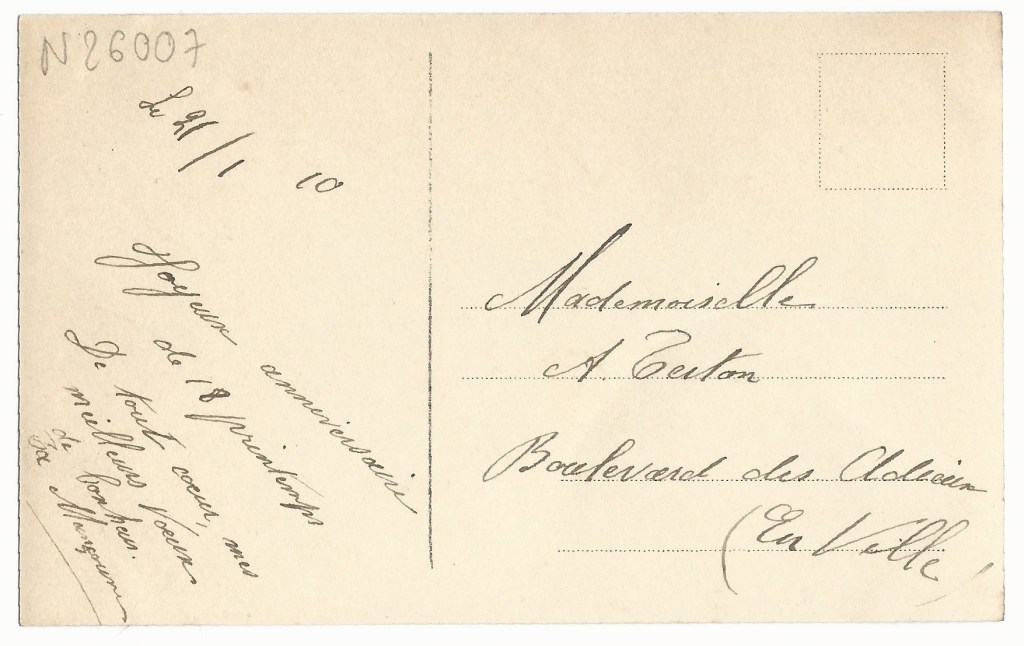 N 26007
Le 21/1 10
Joyeux anniversaire
de 18 printemps
De tout cœur, mes
meilleurs vœux
de bonheur.
Mademoiselle
A. Terton
Boulevard des Adieux
(En Ville)